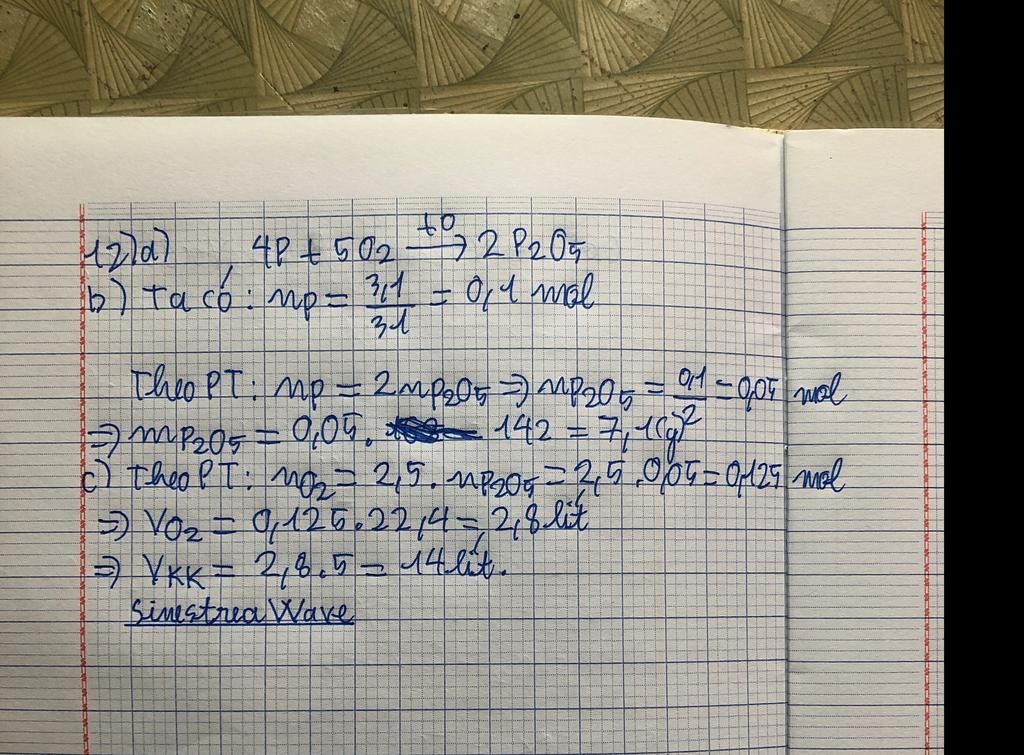 12)a) 4P + 5O2 → t0 2P2O5
b) Ta có: nP = 3,1/31 = 0,1 mol
Theo PT: nP = 2nP2O5 => nP2O5 = 0,1/2 = 0,05 mol
=> mP2O5 = 0,05. 142 = 7,1(g)
c) Theo PT: nO2 = 2,5. nP2O5 = 2,5.0,05 = 0,125 mol
=> VO2 = 0,125.22,4 = 2,8 lít
=> VKK = 2,8.5 = 14 lít.
Sinestrea Wave